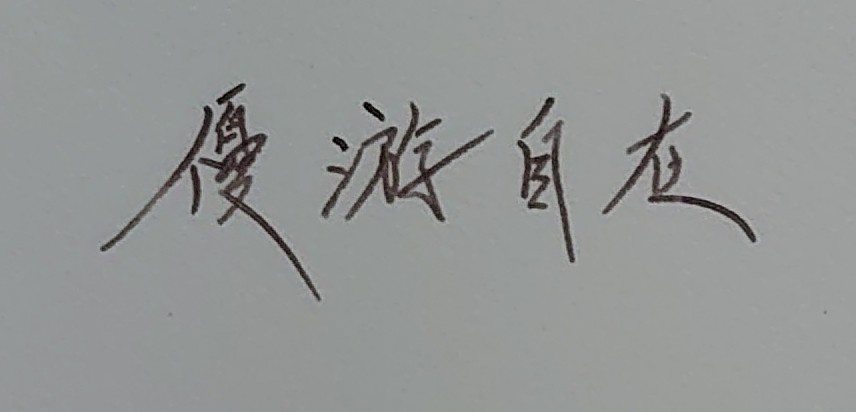 優游自在